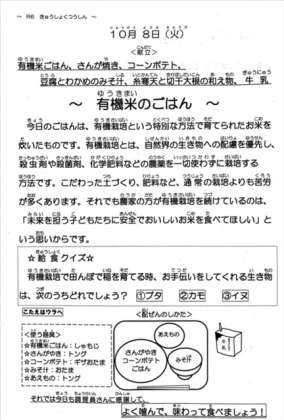 ～ R6 きゅうしょくつうしん ～
10月 8日（火）
＜献立＞
有機米ごはん、さんが焼き、コーンポテト、
豆腐とわかめのみそ汁、糸寒天と切干大根の和え物、牛乳
～ 有機米のごはん ～
今日のごはんは、有機栽培という特別な方法で育てられたお米を
炊いたものです。有機栽培とは、自然界の生き物への配慮を優先し、
殺虫剤や殺菌剤、化学肥料などの農薬を一切使わずに栽培する
方法です。こだわった土づくり、肥料など、通常の栽培よりも苦労
が多くあります。それでも農家の方が有機栽培を続けているのは、
「未来を担う子どもたちに安全でおいしいお米を食べてほしい」と
いう思いからです。
☆給食クイズ☆
有機栽培いた田んぼで稲を育てる時、お手伝いをしてくれる生き物
は、次のうちどれでしょう？ ①ブタ ②カモ ③イヌ
こたえはウラへ
＜使う器具＞
☆有機米ごはん：しゃもじ
☆さんがやき：トング
☆コーンポテト：ギザおたま
☆みそ汁：おたま
☆あえもの：トング
＜配ぜんのしかた＞
あえもの
さんがやき
コーンポテト
ごはん
みそ汁
それでは今日も調理員さんに感謝して、
よく噛んで、味わって食べましょう！